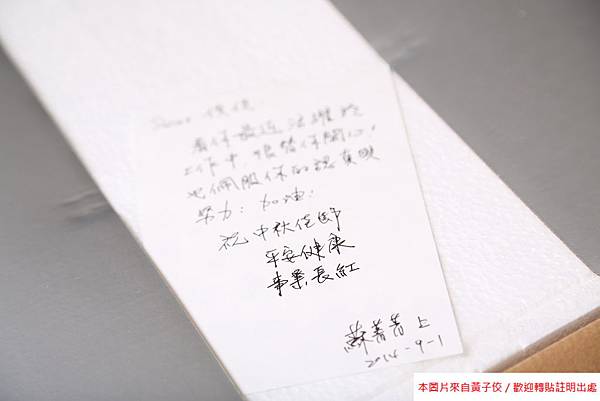 Dear 佼佼
看你最近活躍於
工作中,很替你開心,
也佩服你的認真與
努力!加油!
祝 中秋佳節
平安健康
事業長紅
蘇菁菁 上
2014-9-1
本圖片來自黃子佼 / 歡迎轉貼註明出處